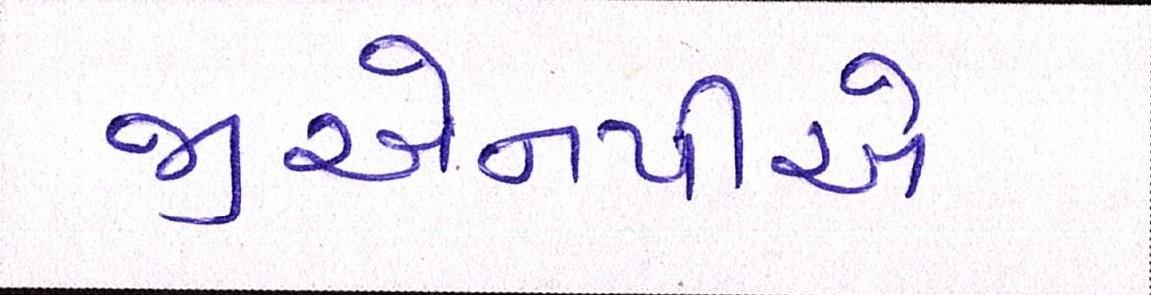 જીએનપીએ